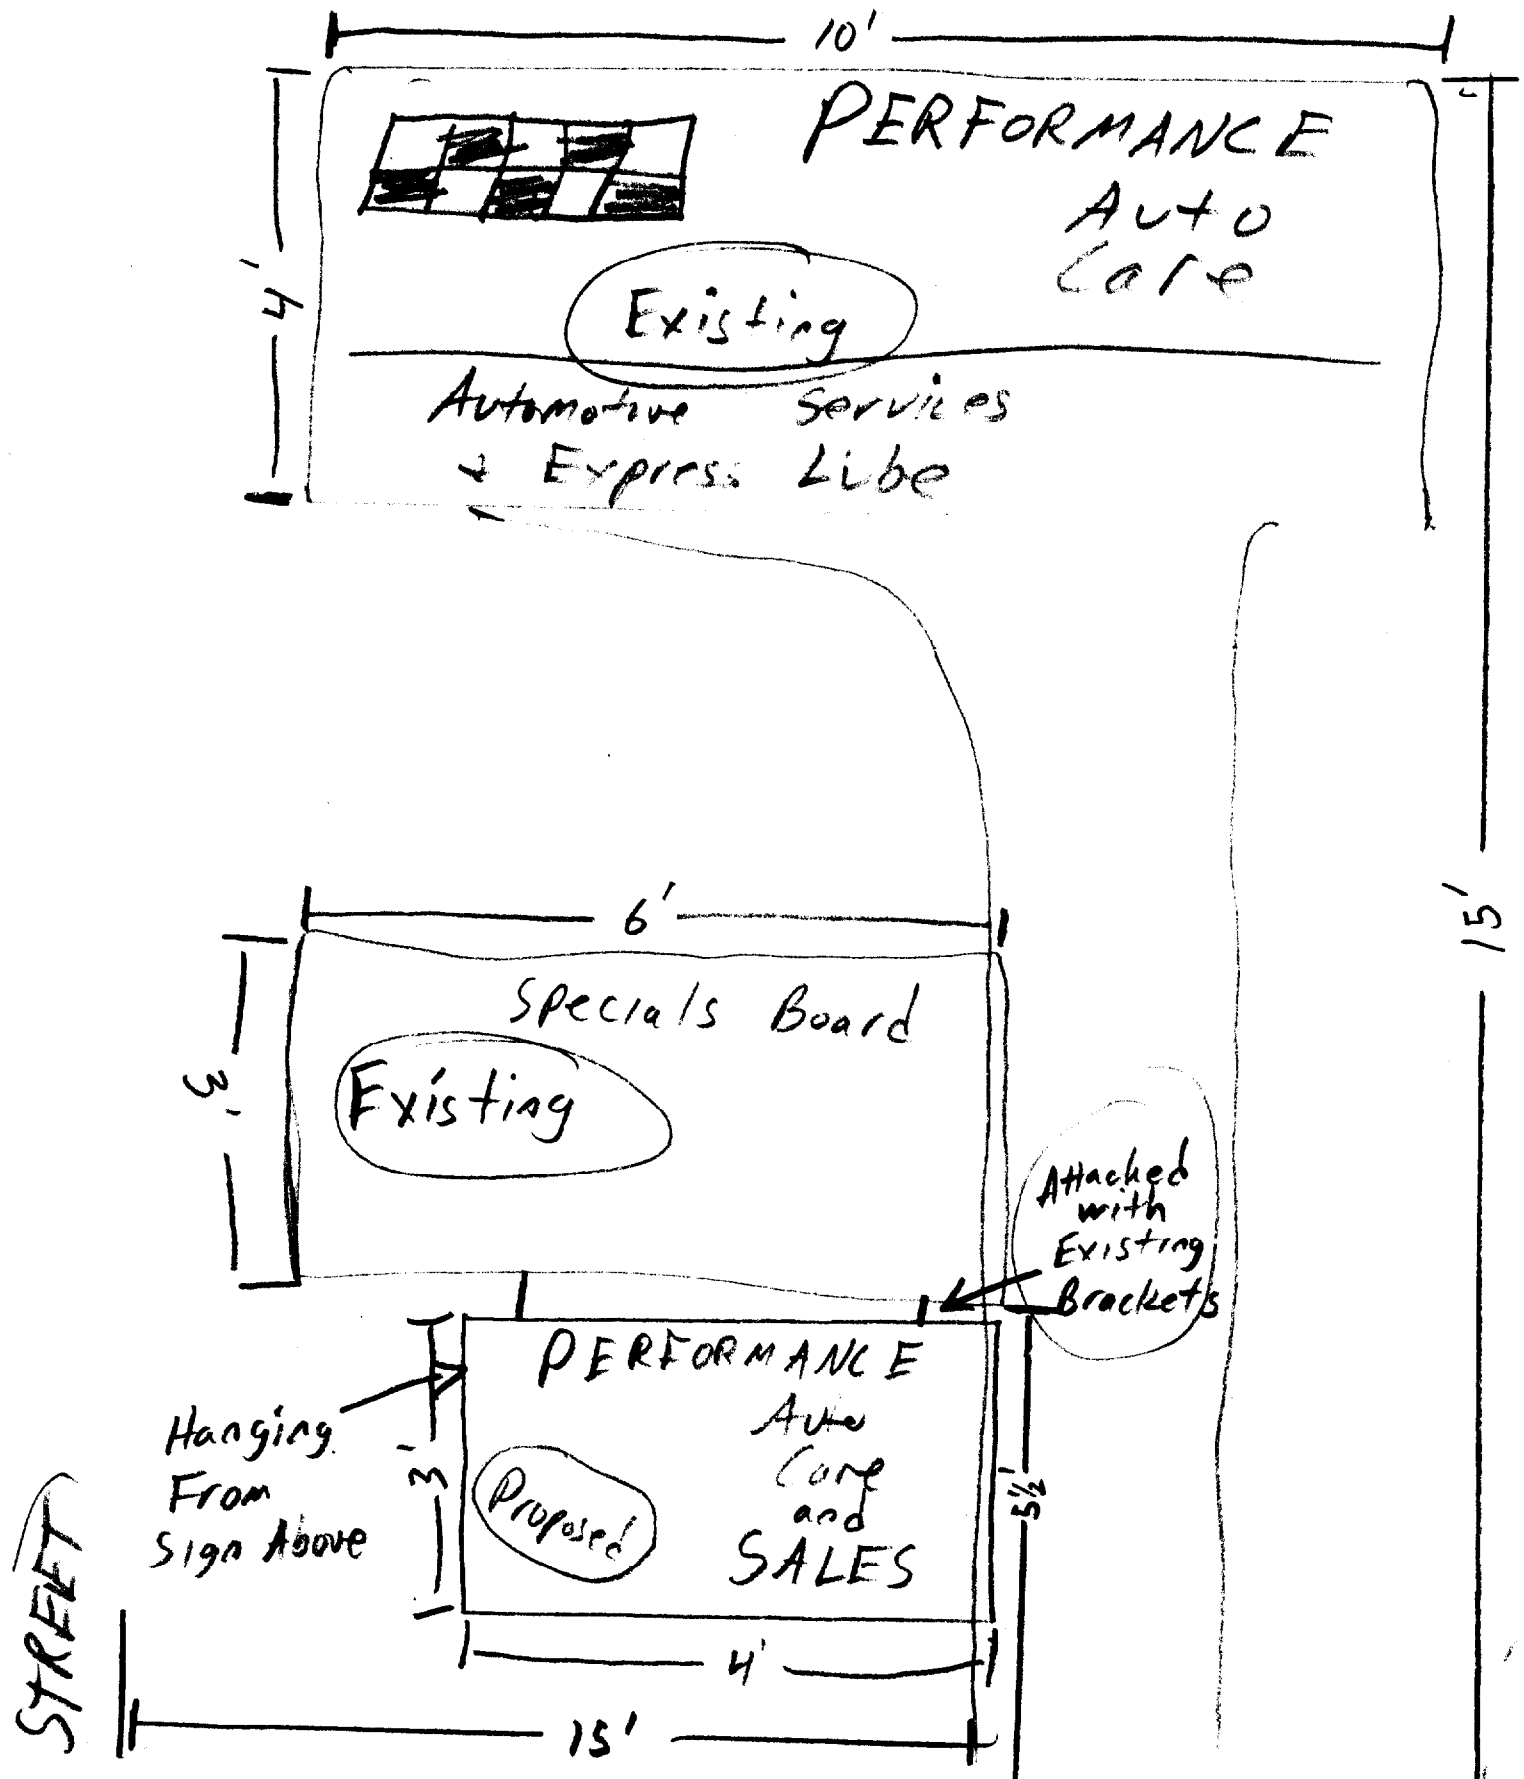 10'
PERFORMANCE
Auto
Care
4'
Existing
Automotive Services
+ Express Lube
15'
6'
Specials Board
3'
Existing
Attached
with
Existing
Brackets
PERFORMANCE
Auto
Care
and
SALES
Proposed
Hanging
From
Sign Above
3'
5½'
4'
STREET
15'